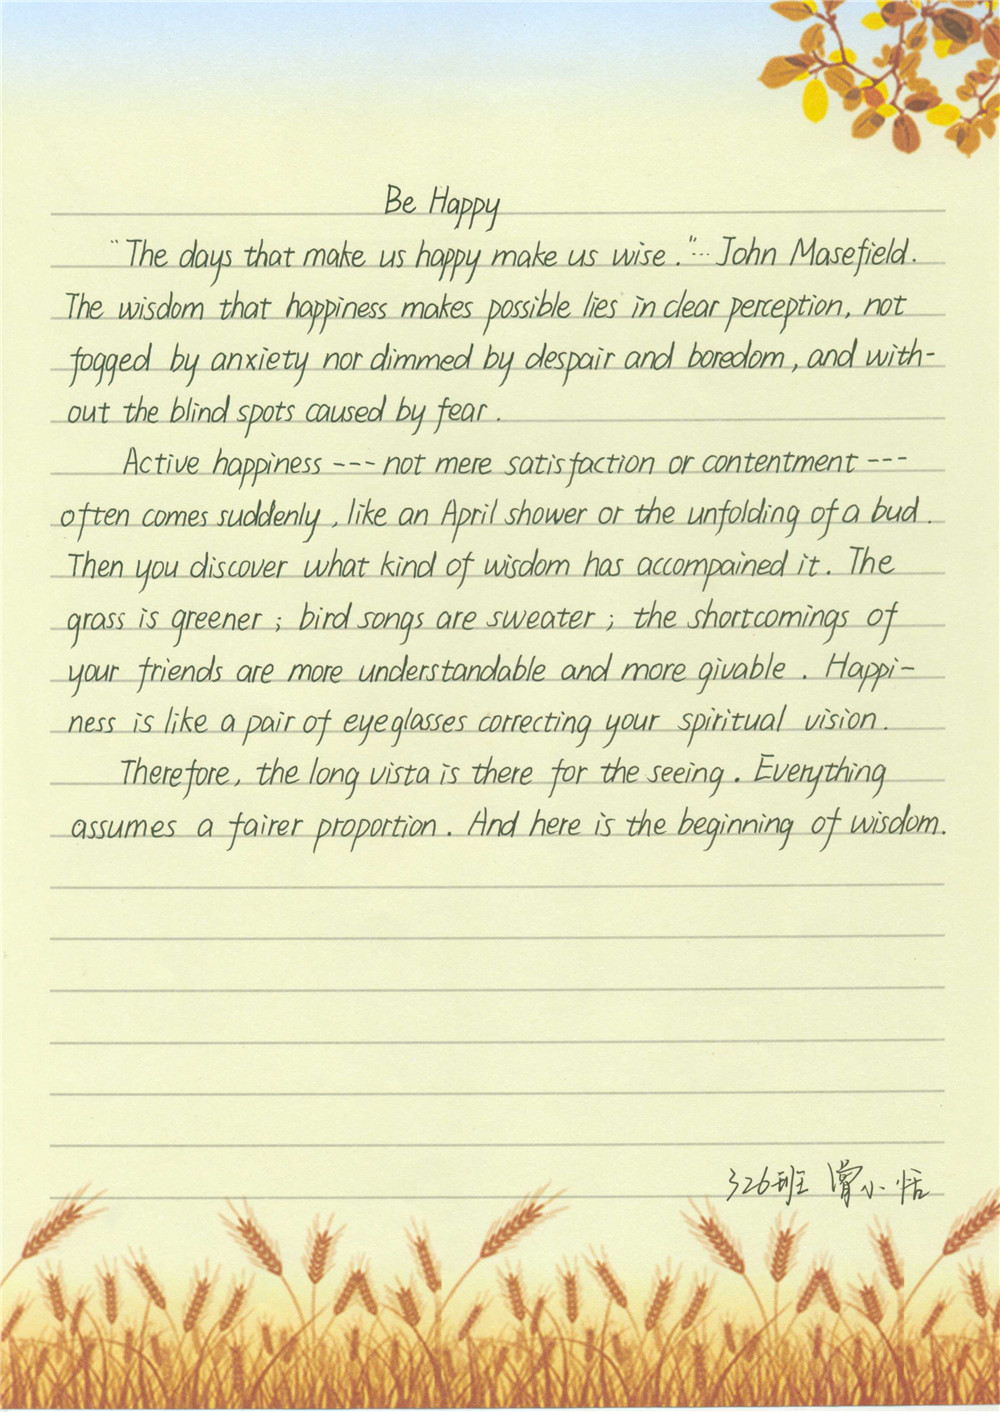 Be Happy
"The days that make us happy make us wise."--- John Masefield.
The wisdom that happiness makes possible lies in clear perception, not
fogged by anxiety nor dimmed by despair and boredom, and with-
out the blind spots caused by fear.
Active happiness --- not mere satisfaction or contentment ---
often comes suddenly, like an April shower or the unfolding of a bud.
Then you discover what kind of wisdom has accompained it. The
grass is greener; bird songs are sweater; the shortcomings of
your friends are more understandable and more givable. Happi-
ness is like a pair of eyeglasses correcting your spiritual vision.
Therefore, the long vista is there for the seeing. Everything
assumes a fairer proportion. And here is the beginning of wisdom.
326班 曾小恬